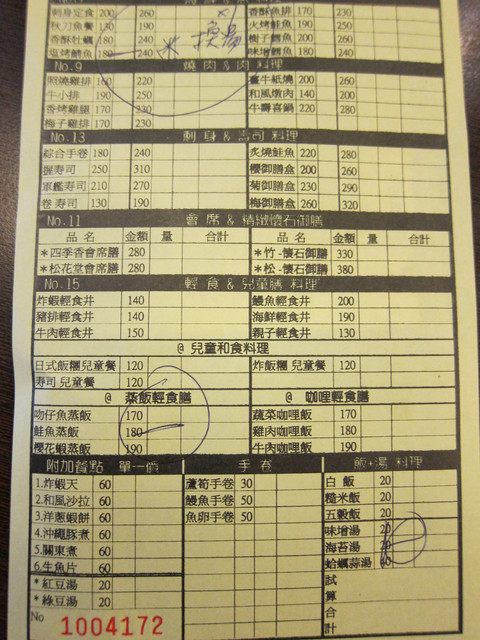 刺身定食 200 260 香酥魚排 190
秋刀魚餐 190 240 火烤鮭魚 190
香酥牡蠣 180 240 樹子鱈魚 200 260
塩烤鯖魚 180 240 味增鱈魚 200 260
米 換湯
No.9 燒肉&肉料理
照燒雞排 160 220 薑牛紙燒 200 260
牛小排 190 250 和風燉肉 140 200
香烤雞腿 170 230 牛壽喜鍋 220 280
梅子雞排 170 230
No.13 刺身&壽司料理
綜合手卷 180 240 炙燒鮭魚 220 280
握壽司 250 310 櫻御膳盒 200 260
軍艦壽司 210 270 菊御膳盒 230 290
卷壽司 130 190 梅御膳盒 260 320
No.11 會席&精緻懷石御膳
品名 金額 量 合計 品名 金額 量 合計
*四季香會席膳 280 *竹-懷石御膳 330
*松花堂會席膳 280 *松-懷石御膳 380
No.15 輕食&兒童膳料理
炸蝦輕食丼 140 鰻魚輕食丼 200
豬排輕食丼 140 海鮮輕食丼 190
牛肉輕食丼 150 親子輕食丼 130
@ 兒童和食料理
日式飯糰兒童餐 120 炸飯糰兒童餐 120
壽司兒童餐 120
@ 蒸飯輕食膳 @ 咖哩輕食膳
吻仔魚蒸飯 170 蔬菜咖哩飯 170
鮭魚蒸飯 180 雞肉咖哩飯 180
櫻花蝦蒸飯 190 牛肉咖哩飯 190
附加餐點 單一價 手卷 飯+湯料理
1.炸蝦天 60 蘆筍手卷 30 白飯 20
2.和風沙拉 60 鰻魚手卷 50 糙米飯 20
3.洋蔥蝦餅 60 魚卵手卷 50 五穀飯 20
4.沖繩豚煮 60 味增湯 20
5.關東煮 60 海苔湯 20
6.生魚片 60 蛤蠣蒜湯 40
*紅豆湯 20 試
*綠豆湯 20 算
合
計
No 1004172